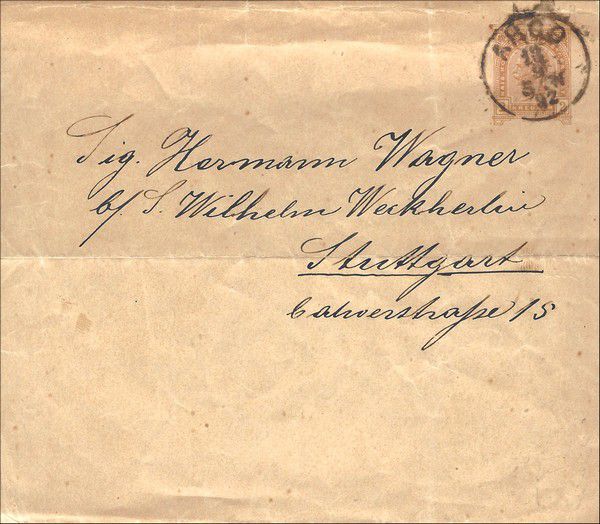 ARCO
Sig. Hermann Wagner
b/. S. Wilhelm Weckherlin
Stuttgart
Calwerstraße 15